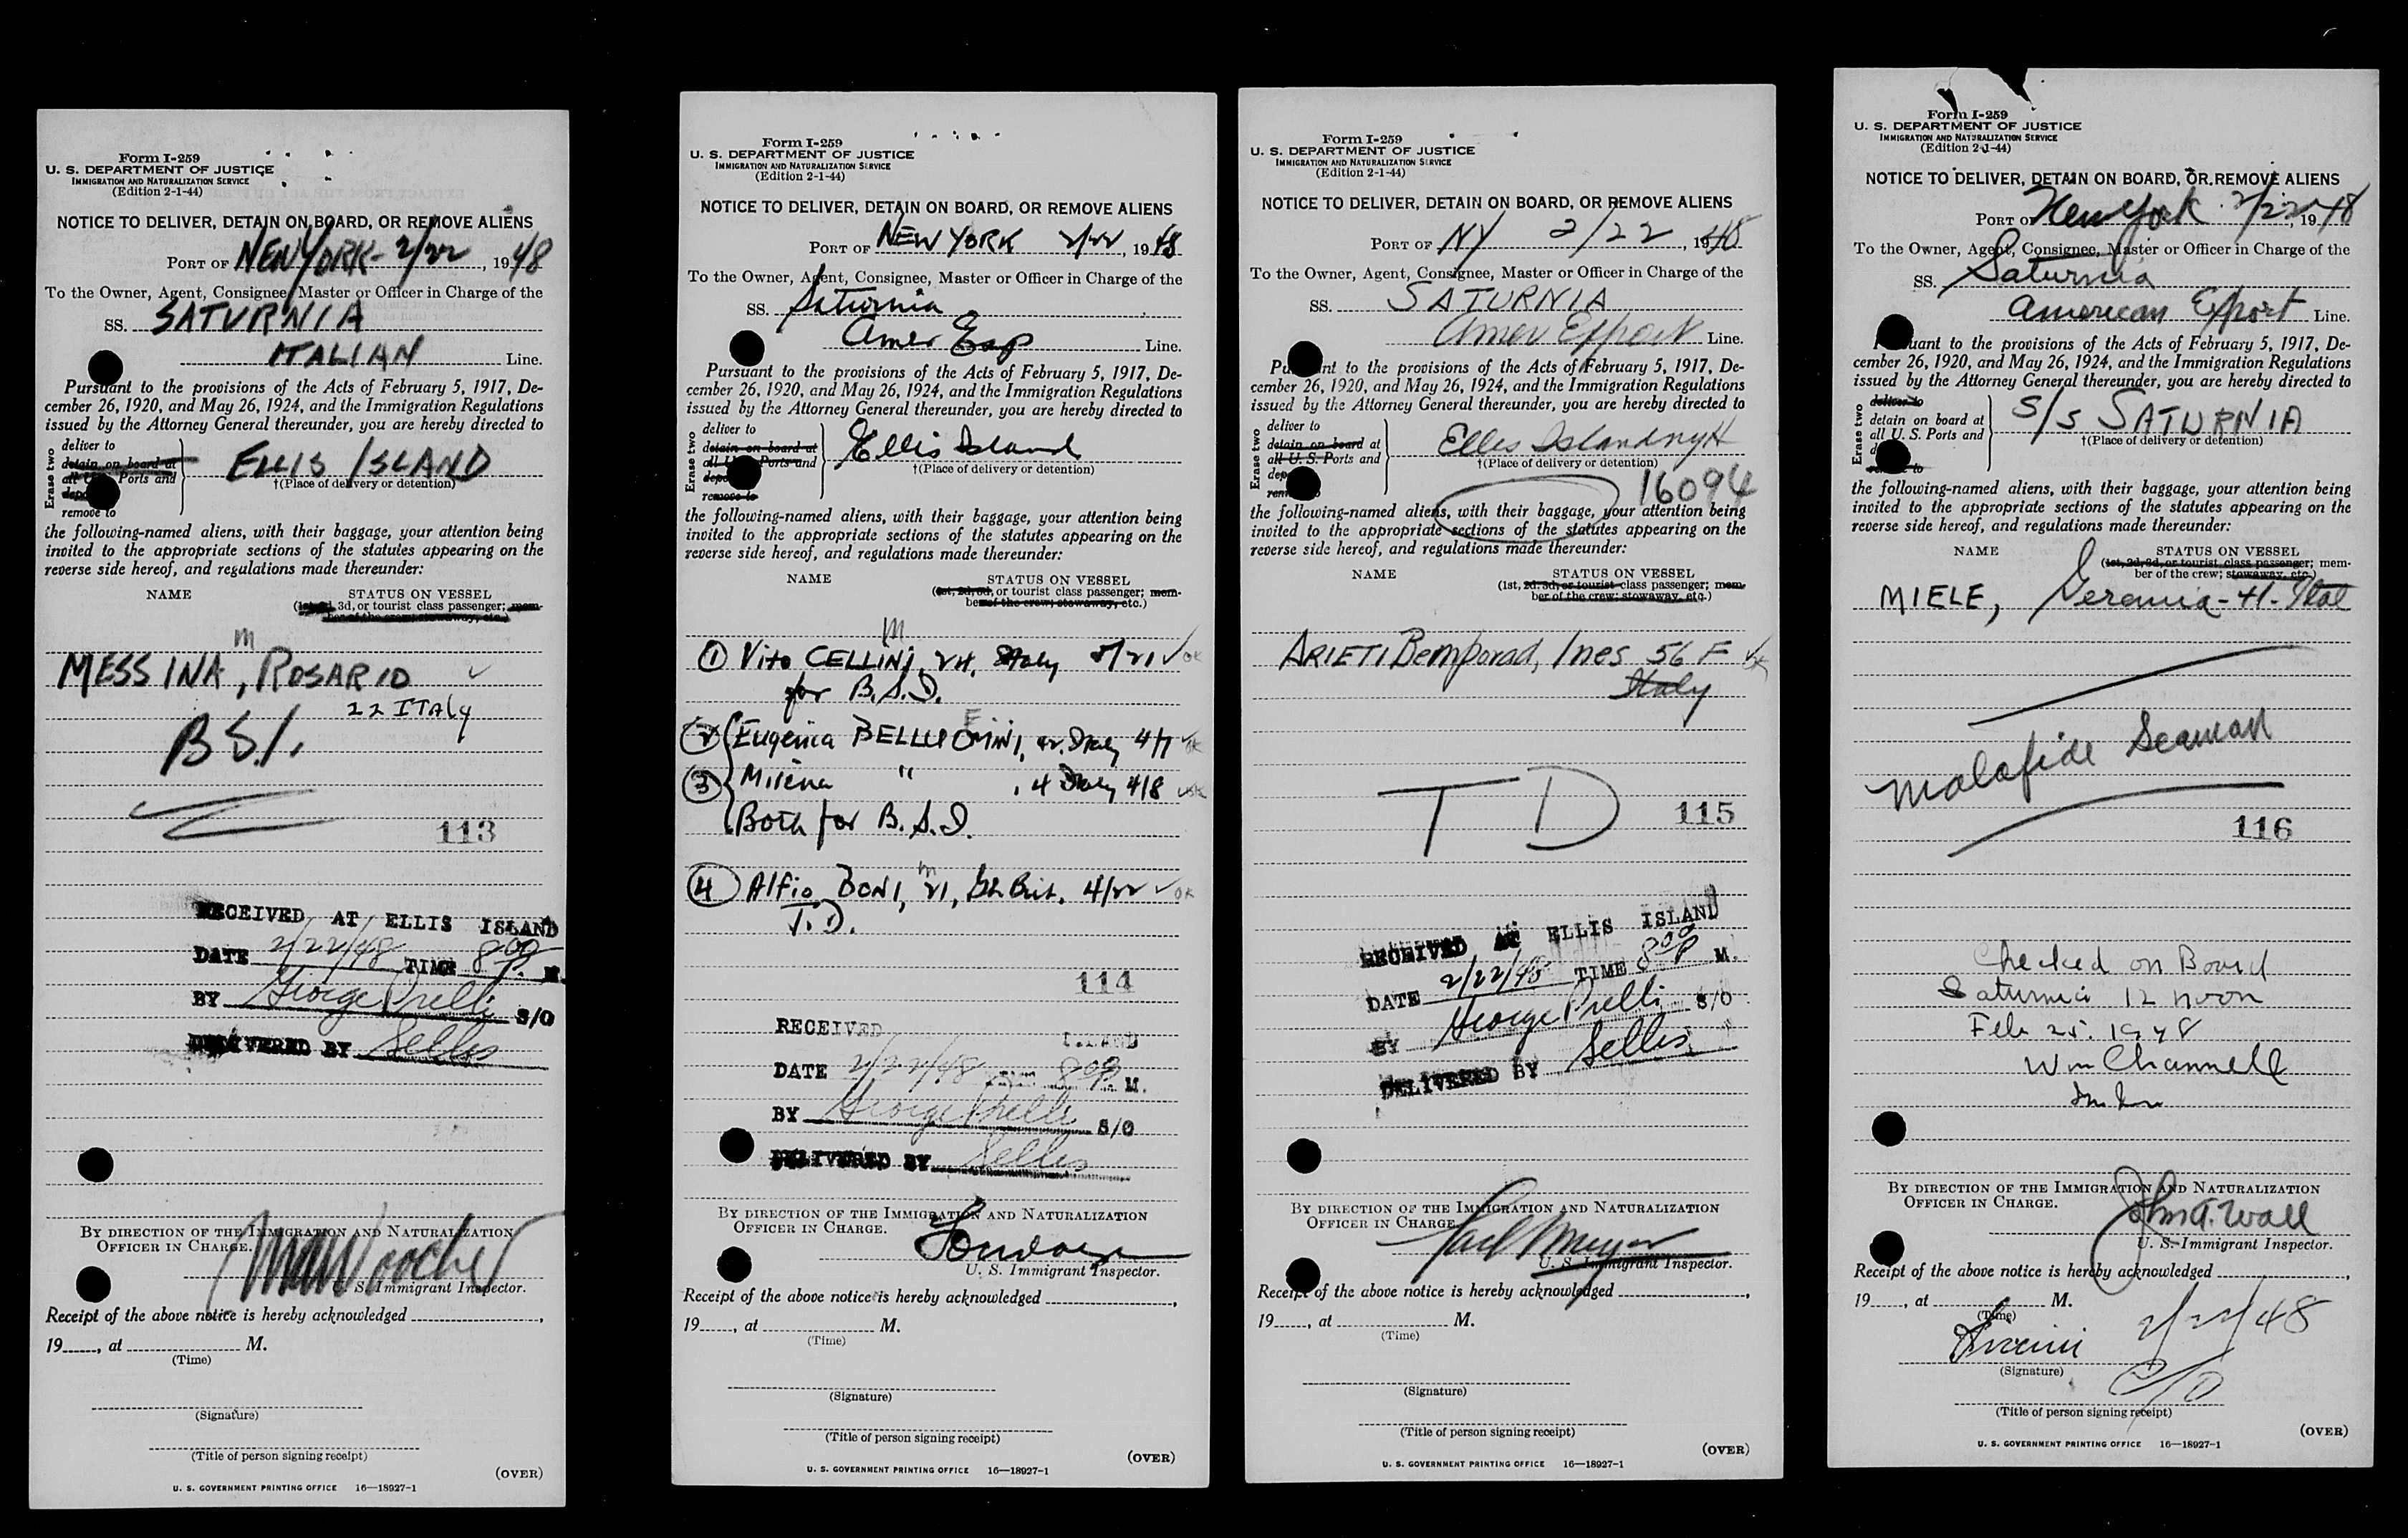 Form I-259
U. S. DEPARTMENT OF JUSTICE
IMMIGRATION AND NATURALIZATION SERVICE
(Edition 2-1-44)
NOTICE TO DELIVER, DETAIN ON BOARD, OR REMOVE ALIENS
PORT OF NEW YORK - 2/22, 1948
To the Owner, Agent, Consignee, Master or Officer in Charge of the
SS. SATURNIA
ITALIAN Line.
Pursuant to the provisions of the Acts of February 5, 1917, De-
cember 26, 1920, and May 26, 1924, and the Immigration Regulations
issued by the Attorney General thereunder, you are hereby directed to
Erase two
deliver to
detain on board at
all U. S. Ports and
remove to
ELLIS ISLAND
†(Place of delivery or detention)
the following-named aliens, with their baggage, your attention being
invited to the appropriate sections of the statutes appearing on the
reverse side hereof, and regulations made thereunder:
NAME STATUS ON VESSEL
3d, or tourist class passenger; mem-
ber of the crew; stowaway, etc.)
m
MESSINA, ROSARIO ✓
22 ITALY
BSI.
113
RECEIVED AT ELLIS ISLAND
DATE 2/22/48 TIME 8 00 P. M.
BY George Prelli S/O
DELIVERED BY Selles
BY DIRECTION OF THE IMMIGRATION AND NATURALIZATION
OFFICER IN CHARGE.
U. S. Immigrant Inspector.
Receipt of the above notice is hereby acknowledged ,
19 , at M.
(Time)
(Signature)
(Title of person signing receipt)
(OVER)
U. S. GOVERNMENT PRINTING OFFICE 16—18927-1
Form I-259
U. S. DEPARTMENT OF JUSTICE
IMMIGRATION AND NATURALIZATION SERVICE
(Edition 2-1-44)
NOTICE TO DELIVER, DETAIN ON BOARD, OR REMOVE ALIENS
PORT OF NEW YORK 2/22, 1948
To the Owner, Agent, Consignee, Master or Officer in Charge of the
SS. Saturnia
Amer Exp Line.
Pursuant to the provisions of the Acts of February 5, 1917, De-
cember 26, 1920, and May 26, 1924, and the Immigration Regulations
issued by the Attorney General thereunder, you are hereby directed to
Erase two
deliver to
detain on board at
all U. S. Ports and
remove to
Ellis Island
†(Place of delivery or detention)
the following-named aliens, with their baggage, your attention being
invited to the appropriate sections of the statutes appearing on the
reverse side hereof, and regulations made thereunder:
NAME STATUS ON VESSEL
(1st, 2d, 3d, or tourist class passenger; mem-
ber of the crew; stowaway, etc.)
m
① Vito CELLINI, 24, Italy 5/21 ✓ OK
for B.S.I.
F
② Eugenia BELLUOMINI, Italy 4/7 ✓ OK
③ Milena " , 4 Italy 4/8 ✓ OK
Both for B.S.I.
m
④ Alfio BONI, 21, Gt. Brit. 4/22 ✓ OK
T.D.
114
RECEIVED
DATE 2/22/48 8 00 P M.
BY George Prelli S/O
DELIVERED BY Selles
BY DIRECTION OF THE IMMIGRATION AND NATURALIZATION
OFFICER IN CHARGE.
U. S. Immigrant Inspector.
Receipt of the above notice is hereby acknowledged ,
19 , at M.
(Time)
(Signature)
(Title of person signing receipt)
(OVER)
U. S. GOVERNMENT PRINTING OFFICE 16—18927-1
Form I-259
U. S. DEPARTMENT OF JUSTICE
IMMIGRATION AND NATURALIZATION SERVICE
(Edition 2-1-44)
NOTICE TO DELIVER, DETAIN ON BOARD, OR REMOVE ALIENS
PORT OF NY 2/22, 1948
To the Owner, Agent, Consignee, Master or Officer in Charge of the
SS. SATURNIA
Amer Export Line.
Pursuant to the provisions of the Acts of February 5, 1917, De-
cember 26, 1920, and May 26, 1924, and the Immigration Regulations
issued by the Attorney General thereunder, you are hereby directed to
Erase two
deliver to
detain on board at
all U. S. Ports and
remove to
Ellis Island NYH
†(Place of delivery or detention)
16094
the following-named aliens, with their baggage, your attention being
invited to the appropriate sections of the statutes appearing on the
reverse side hereof, and regulations made thereunder:
NAME STATUS ON VESSEL
(1st, 2d, 3d, or tourist class passenger; mem-
ber of the crew; stowaway, etc.)
ARIETI Bemporad, Ines 56 F ✓ OK
Italy
T D
115
RECEIVED AT ELLIS ISLAND
DATE 2/22/48 TIME 8 00 P M.
BY George Prelli S/O
DELIVERED BY Selles
BY DIRECTION OF THE IMMIGRATION AND NATURALIZATION
OFFICER IN CHARGE.
U. S. Immigrant Inspector.
Receipt of the above notice is hereby acknowledged ,
19 , at M.
(Time)
(Signature)
(Title of person signing receipt)
(OVER)
U. S. GOVERNMENT PRINTING OFFICE 16—18927-1
Form I-259
U. S. DEPARTMENT OF JUSTICE
IMMIGRATION AND NATURALIZATION SERVICE
(Edition 2-1-44)
NOTICE TO DELIVER, DETAIN ON BOARD, OR REMOVE ALIENS
PORT OF New York 2/22, 1948
To the Owner, Agent, Consignee, Master or Officer in Charge of the
SS. Saturnia
American Export Line.
Pursuant to the provisions of the Acts of February 5, 1917, De-
cember 26, 1920, and May 26, 1924, and the Immigration Regulations
issued by the Attorney General thereunder, you are hereby directed to
Erase two
deliver to
detain on board at
all U. S. Ports and
remove to
S/S SATURNIA
†(Place of delivery or detention)
the following-named aliens, with their baggage, your attention being
invited to the appropriate sections of the statutes appearing on the
reverse side hereof, and regulations made thereunder:
NAME STATUS ON VESSEL
(1st, 2d, 3d, or tourist class passenger; mem-
ber of the crew; stowaway, etc.)
MIELE, - 41 - Ital
Malafide Seaman
116
Checked on Board
Saturnia 12 noon
Feb 25. 1948
Wm Channell
BY DIRECTION OF THE IMMIGRATION AND NATURALIZATION
OFFICER IN CHARGE.
John A. Wall
U. S. Immigrant Inspector.
Receipt of the above notice is hereby acknowledged ,
19 , at M.
(Time)
2/22/48
(Signature)
C/O
(Title of person signing receipt)
(OVER)
U. S. GOVERNMENT PRINTING OFFICE 16—18927-1